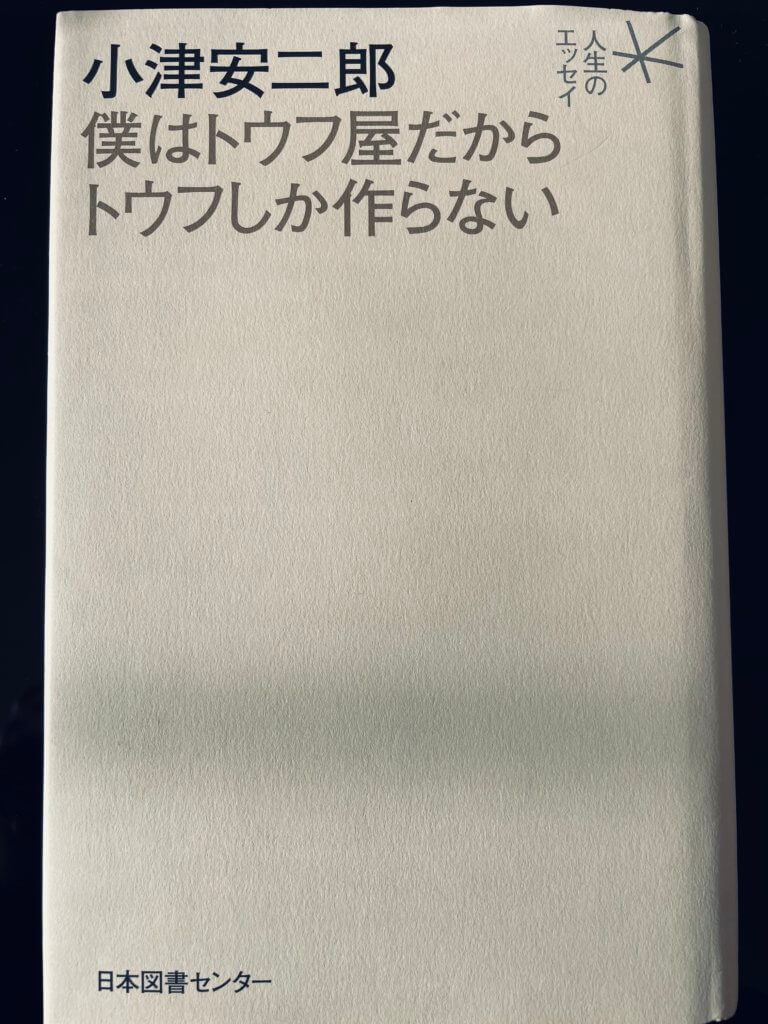 小津安二郎
僕はトウフ屋だから
トウフしか作らない
人生の
エッセイ
日本図書センター